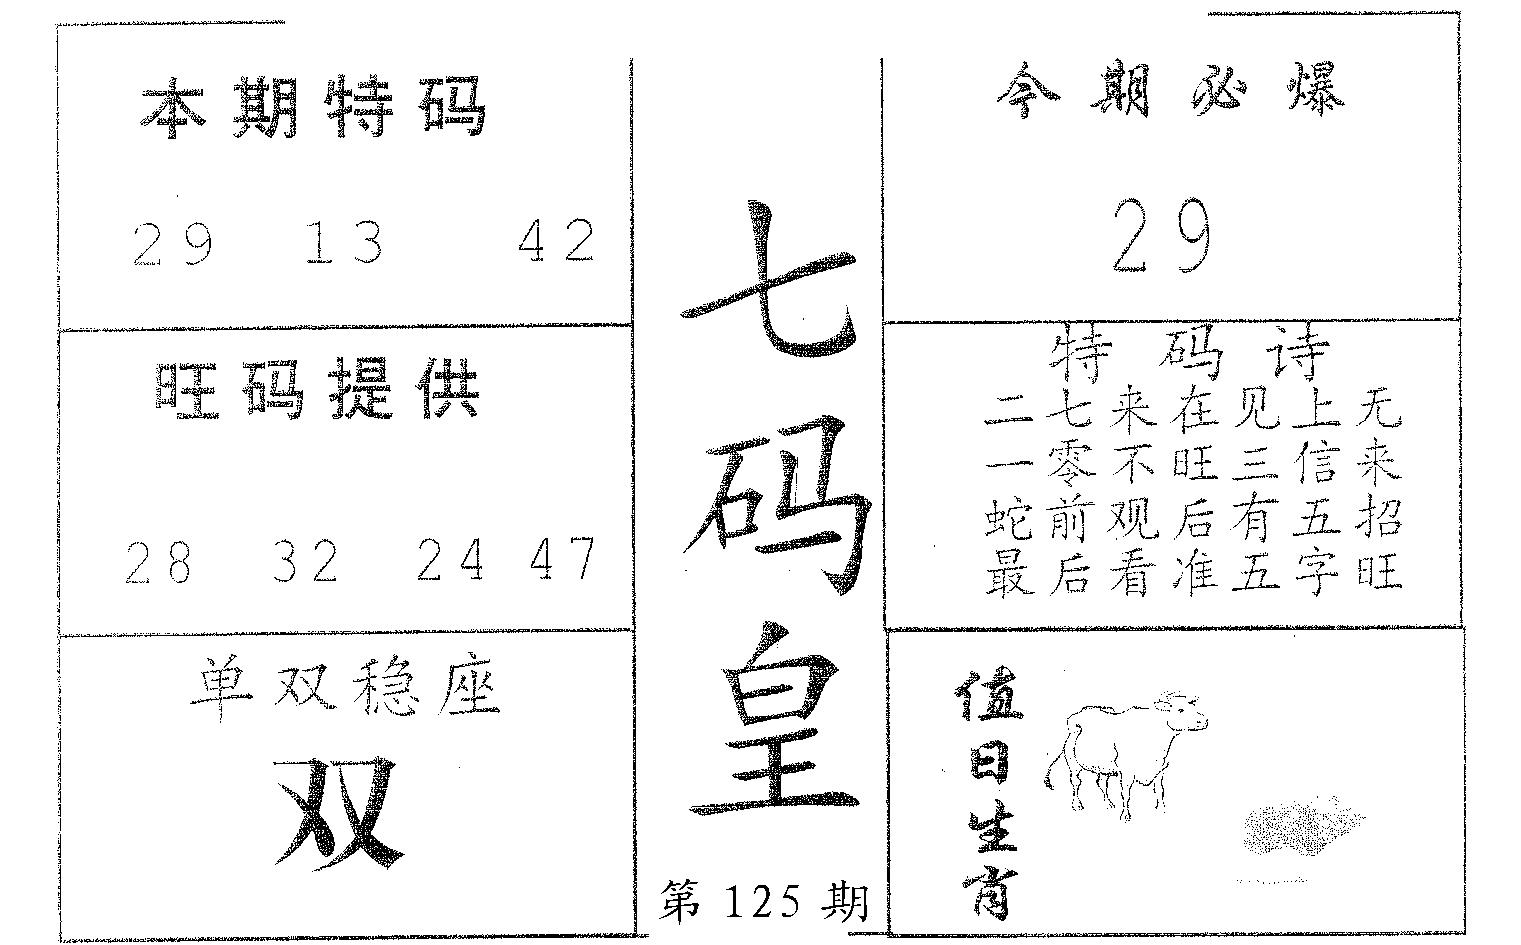 本期特码
29 13 42
旺码提供
28 32 24 47
单双稳座
双
七码皇
第125期
今期必爆
29
特码诗
二七来在见上无
一零不旺三信来
蛇前观后有五招
最后看准五字旺
值日生肖